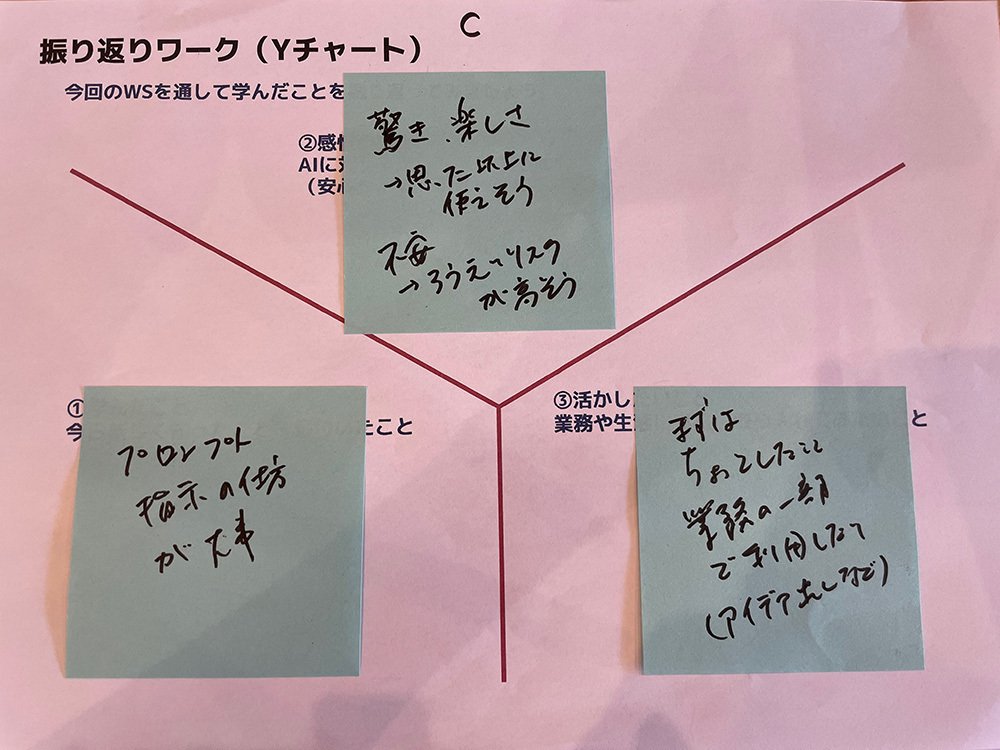 C
振り返りワーク（Yチャート）
今回のWSを通して学んだことを
②感情
AIに対
（安心
驚き、楽しさ
→思った以上に
使えそう
不安
→ろうえいリスク
が高そう
①
今
たこと
プロンプト
指示の仕方
が大事
③活かし
業務や生活
と
まずは
ちょっとしたこと
業務の一部
で利用したい
(アイデア出しなど)